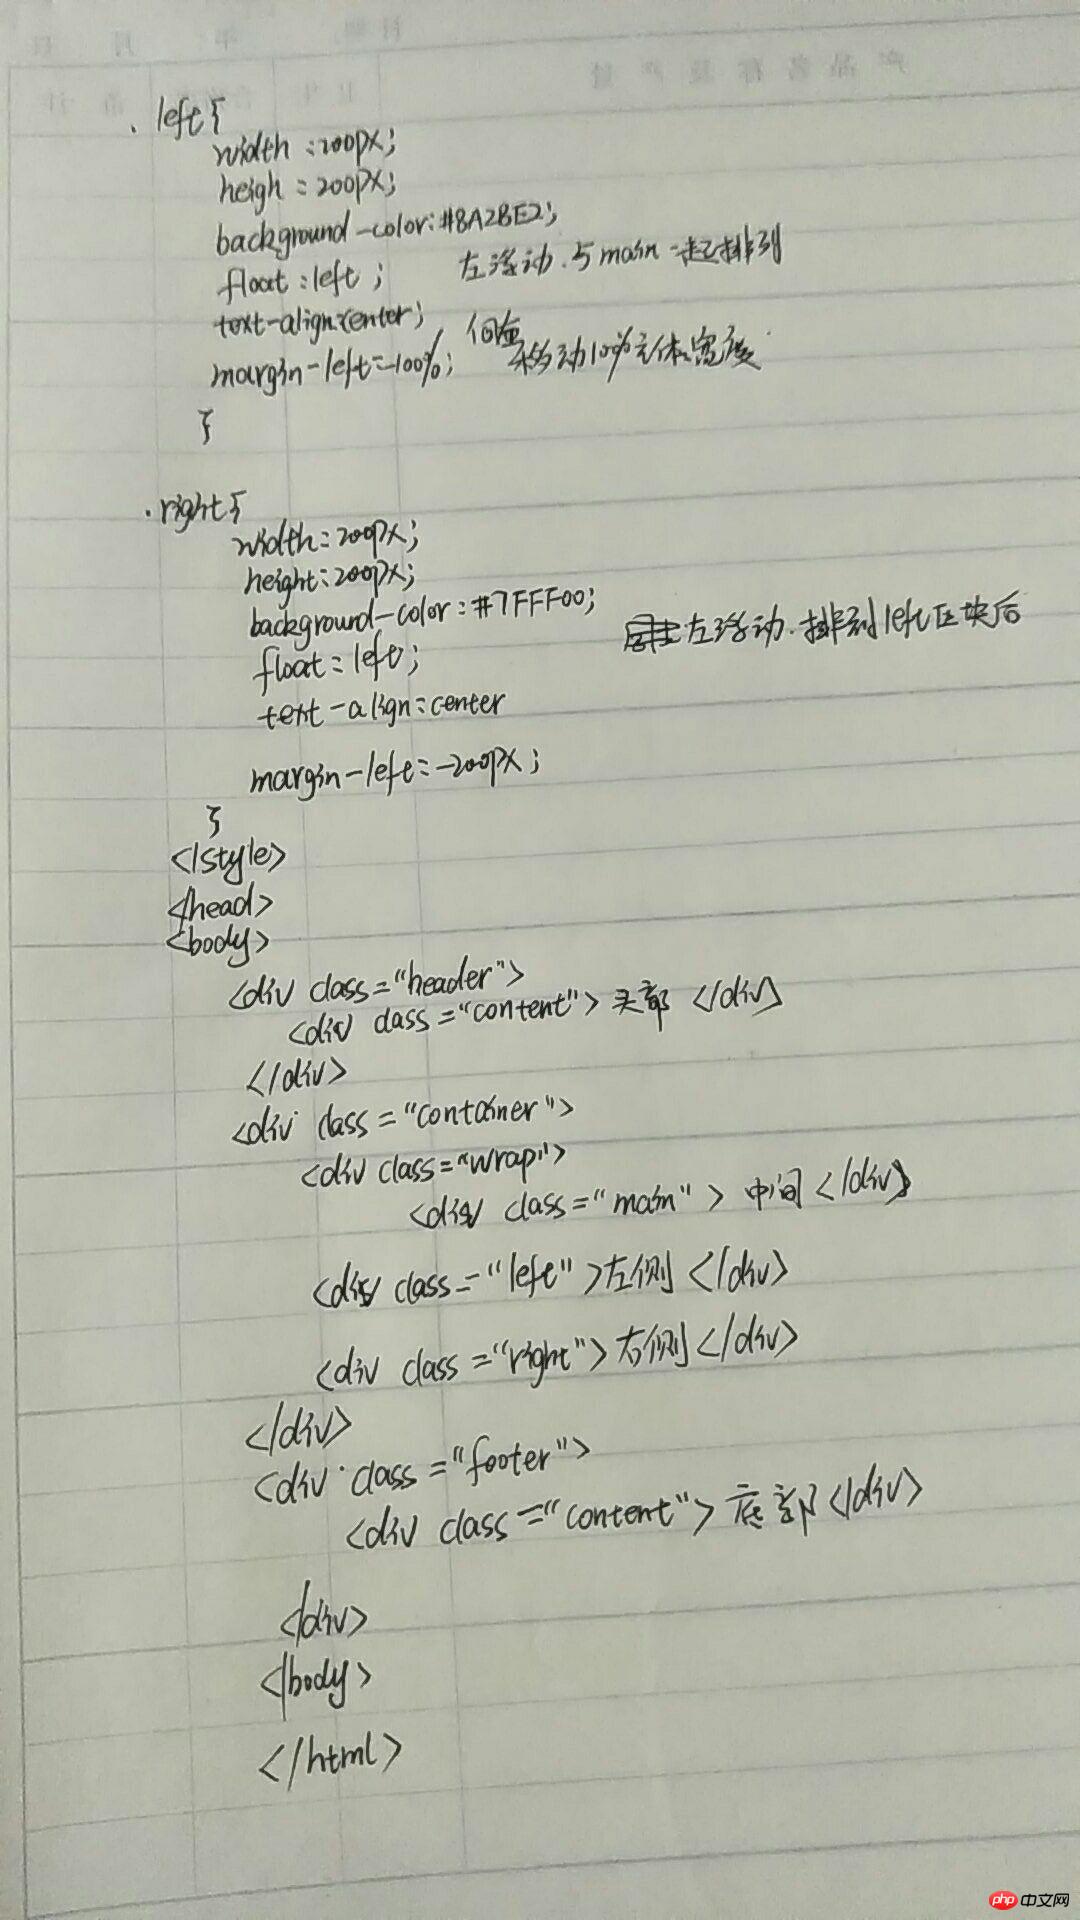 .left{
width:200px;
heigh:200px;
background-color:#8A2BE2;
float:left; 左浮动.与main一起排列
text-align:center;
margin-left:-100%; 向左移动100%主体宽度
}
.right{
width:200px;
height:200px;
background-color:#7FFF00;
float:left; 左浮动.排到left区块后
text-align:center
margin-left:-200px;
}
</style>
</head>
<body>
<div class="header">
<div class="content">头部</div>
</div>
<div class="container">
<div class="wrap">
<div class="main">中间</div>
<div class="left">左侧</div>
<div class="right">右侧</div>
</div>
<div class="footer">
<div class="content">底部</div>
</div>
</body>
</html>
php中文网